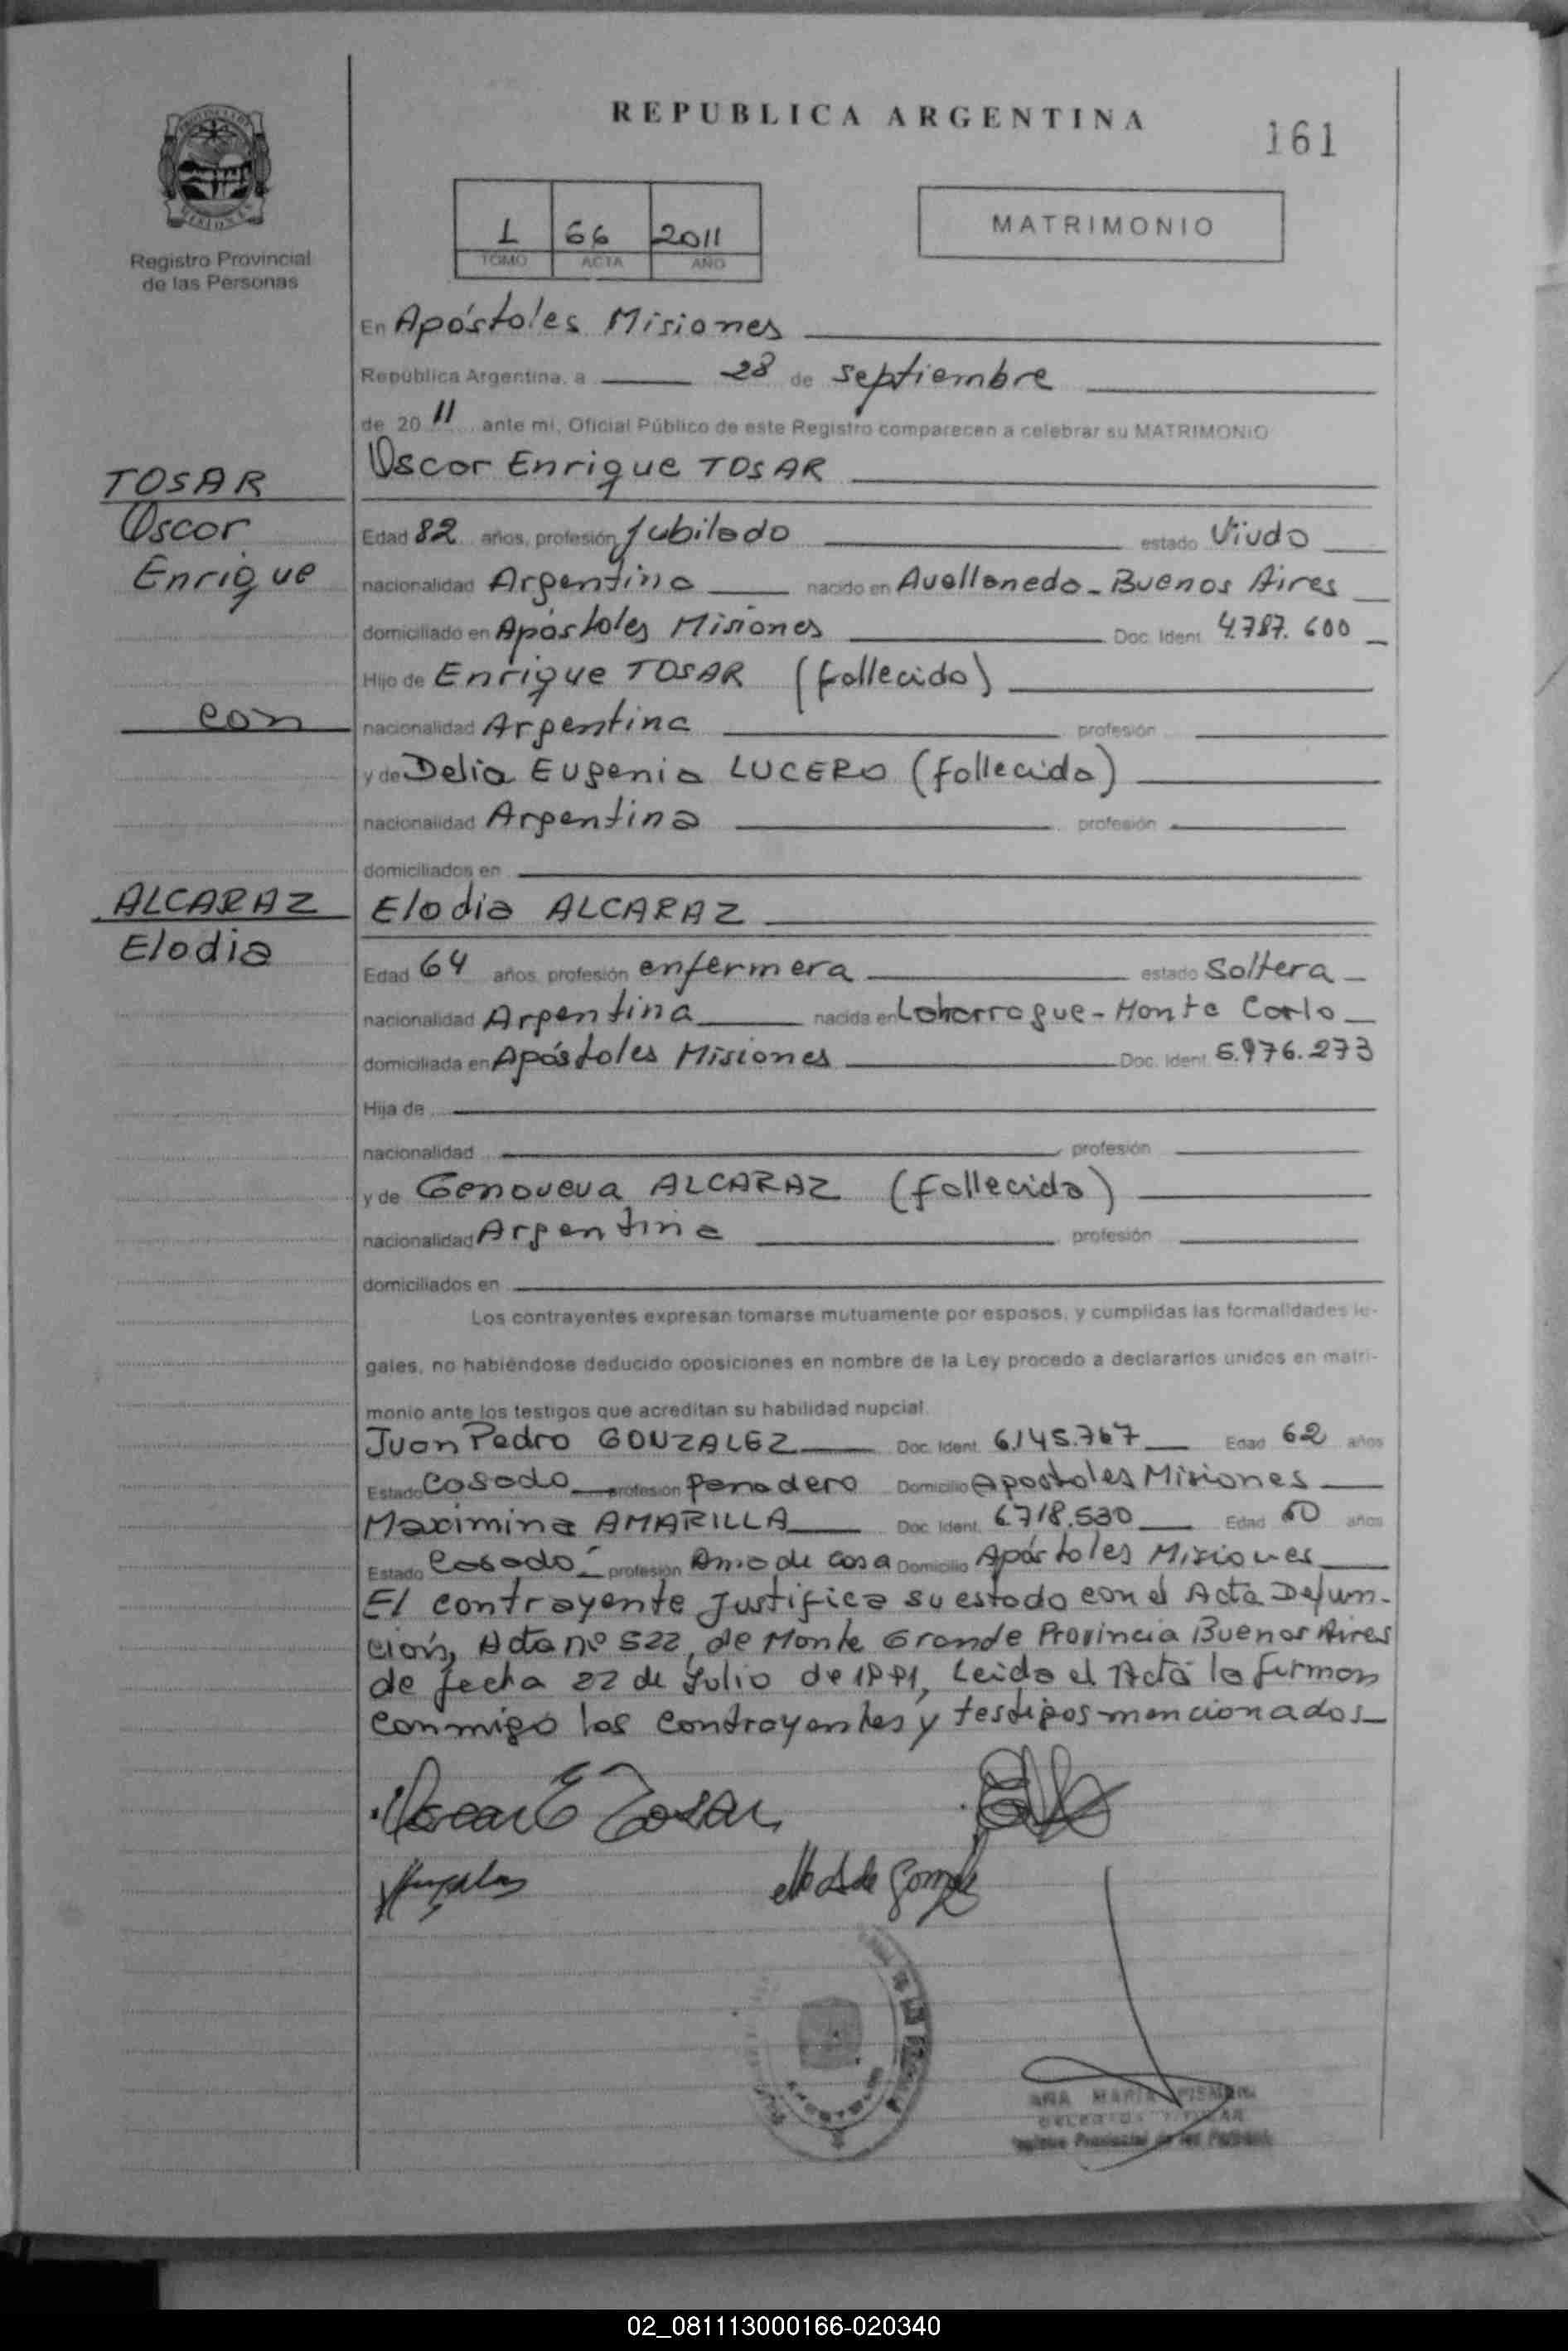 REPUBLICA ARGENTINA
161
1 66 2011
TOMO ACTA AÑO
MATRIMONIO
Registro Provincial
de las Personas
En Apóstoles Misiones
República Argentina, a 28 de septiembre
de 2011 ante mí, Oficial Público de este Registro comparecen a celebrar su MATRIMONIO
TOSAR
Oscar
Enrique
con
ALCARAZ
Elodia
Oscar Enrique TOSAR
Edad 82 años, profesión Jubilado estado Viudo
nacionalidad Argentina nacido en Avellaneda - Buenos Aires
domiciliado en Apóstoles Misiones Doc. Ident. 4.787.600
Hijo de Enrique TOSAR (fallecido)
nacionalidad Argentina profesión
y de Delia Eugenia LUCERO (fallecida)
nacionalidad Argentina profesión
domiciliados en
Elodia ALCARAZ
Edad 64 años, profesión enfermera estado Soltera
nacionalidad Argentina nacida en Laharrague - Monte Carlo
domiciliada en Apóstoles Misiones Doc. Ident. 6.976.273
Hija de
nacionalidad profesión
y de Genoveva ALCARAZ (fallecida)
nacionalidad Argentina profesión
domiciliados en
Los contrayentes expresan tomarse mutuamente por esposos, y cumplidas las formalidades le-
gales, no habiéndose deducido oposiciones en nombre de la Ley procedo a declararlos unidos en matri-
monio ante los testigos que acreditan su habilidad nupcial.
Juan Pedro GONZALEZ Doc. Ident. 6.145.767 Edad 62 años
Estado Casado profesión panadero Domicilio Apostoles Misiones
Maximina AMARILLA Doc. Ident. 6.718.530 Edad 60 años
Estado Casada profesión Ama de casa Domicilio Apóstoles Misiones
El contrayente Justifica su estado con el Acta Defun-
ción, Acta nº 522, de Monte Grande Provincia Buenos Aires
de fecha 22 de Julio de 1991, Leida el Acta la firman
conmigo los contrayentes y testigos mencionados
Oscar E Tosar
ANA MARIA
Registro Provincial de las Personas
02_081113000166-020340